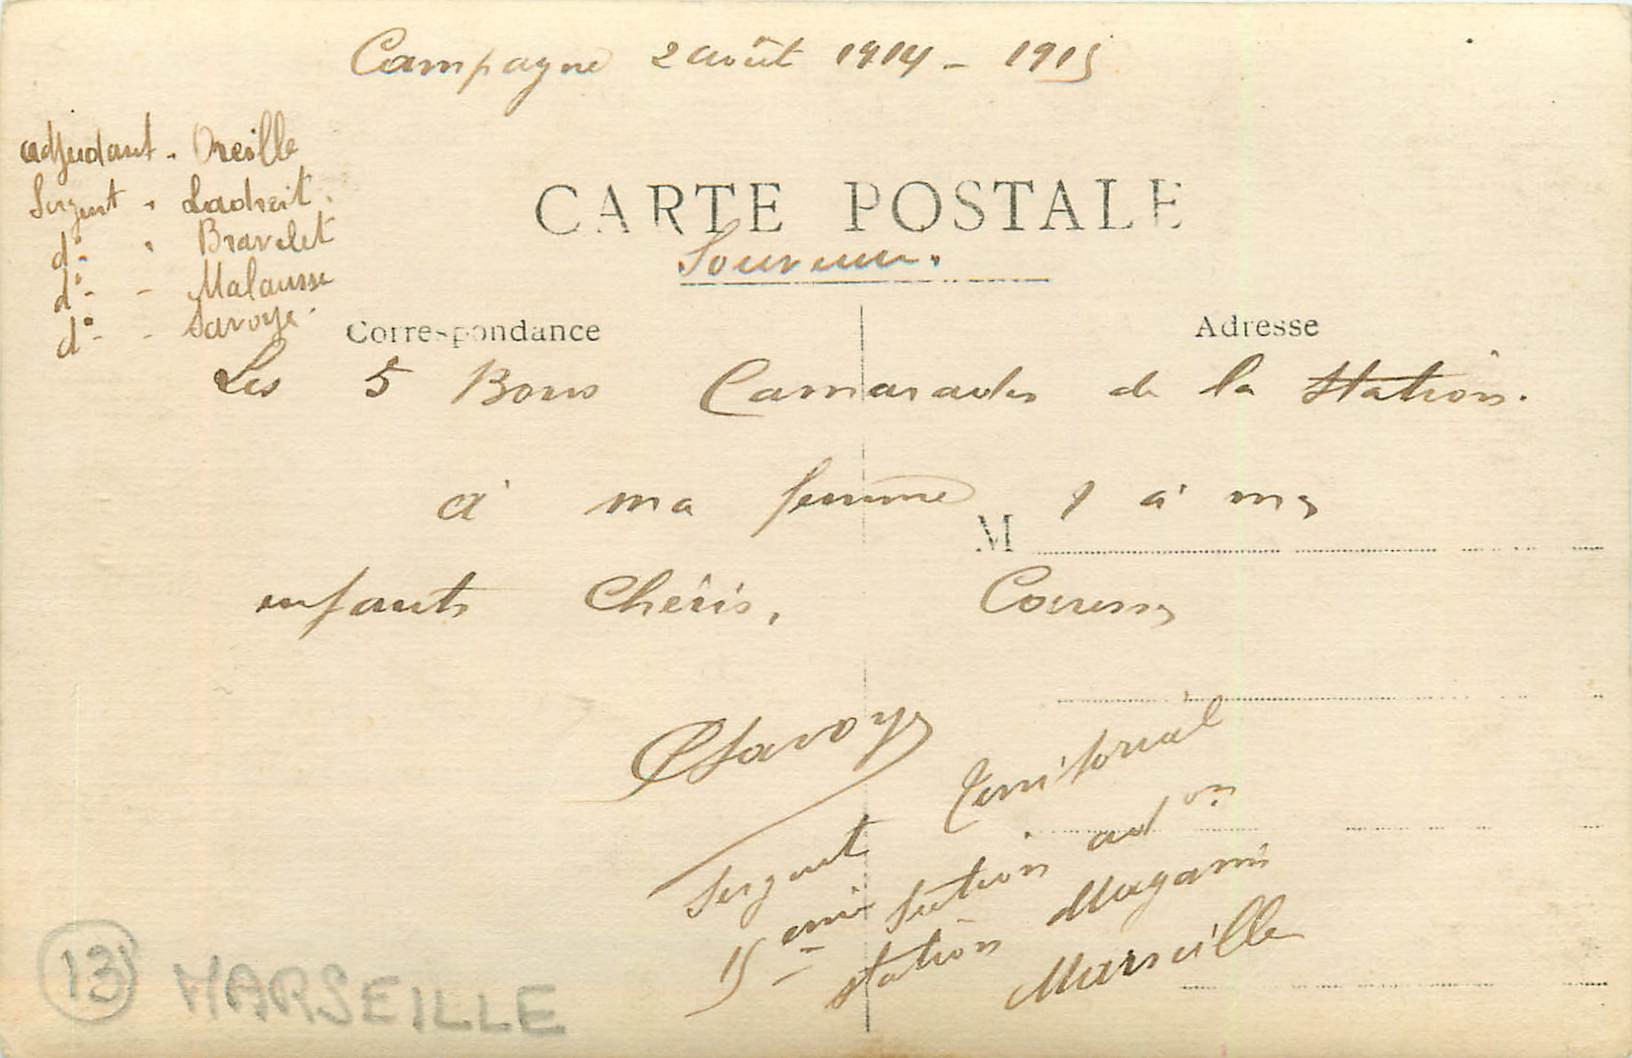 Campagne 2 août 1914 - 1915
adjudant - Oreille
Sergent - Ladreit.
do - Bravelet
do - Malausse
do - Savoye.
CARTE POSTALE
Souvenir.
Correspondance
Adresse
Les 5 Bons Camarades de la Station.
à ma femme & à mes
M
enfants Chéris,
CSavoye
Sergent Territorial
15eme Section adon
station Magasin
Marseille
13 MARSEILLE